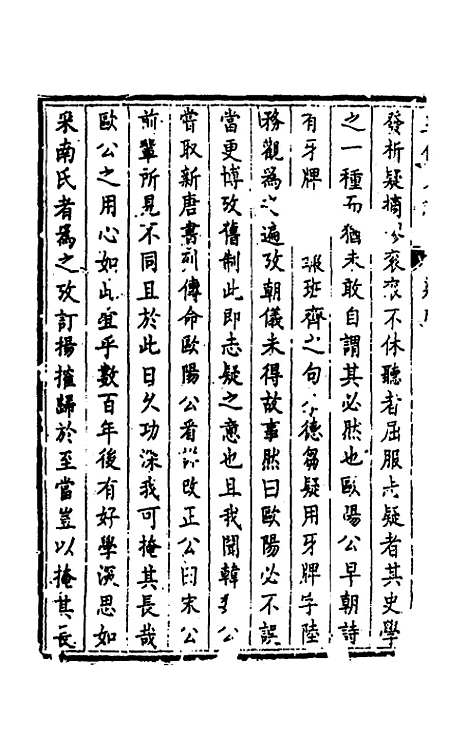 發析疑摘 袞袞不休聽者屈服志疑者其史學
之一種而猶未敢自謂其必然也歐陽公早朝詩
有牙牌 班齊之句 德芻疑用牙牌字陸
務觀為之遍攷朝儀未得故事然曰歐陽必不誤
當更博攷舊制此即志疑之意也且我聞韓 公
嘗取新唐書列傳命歐陽公看詳改正公曰宋公
前輩所見不同且於此日久功深我可掩其長哉
歐公之用心如此宜乎數百年後有好學深思如
采南氏者為之攷訂揚搉歸於至當豈以掩其長